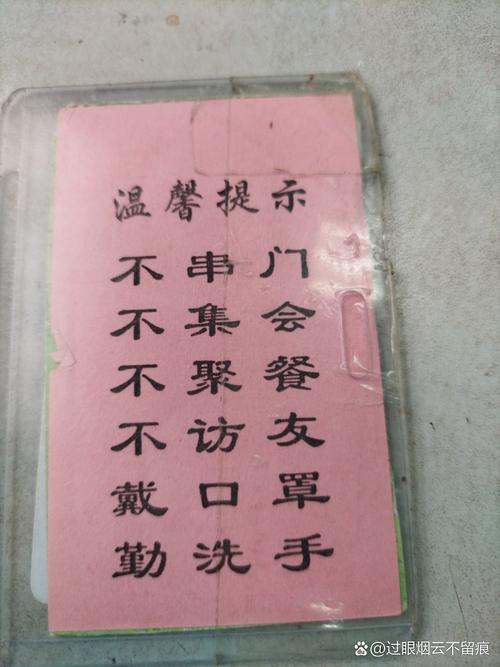 温馨提示
不串门
不集会
不聚餐
不访友
戴口罩
勤洗手
@过眼烟云不留痕